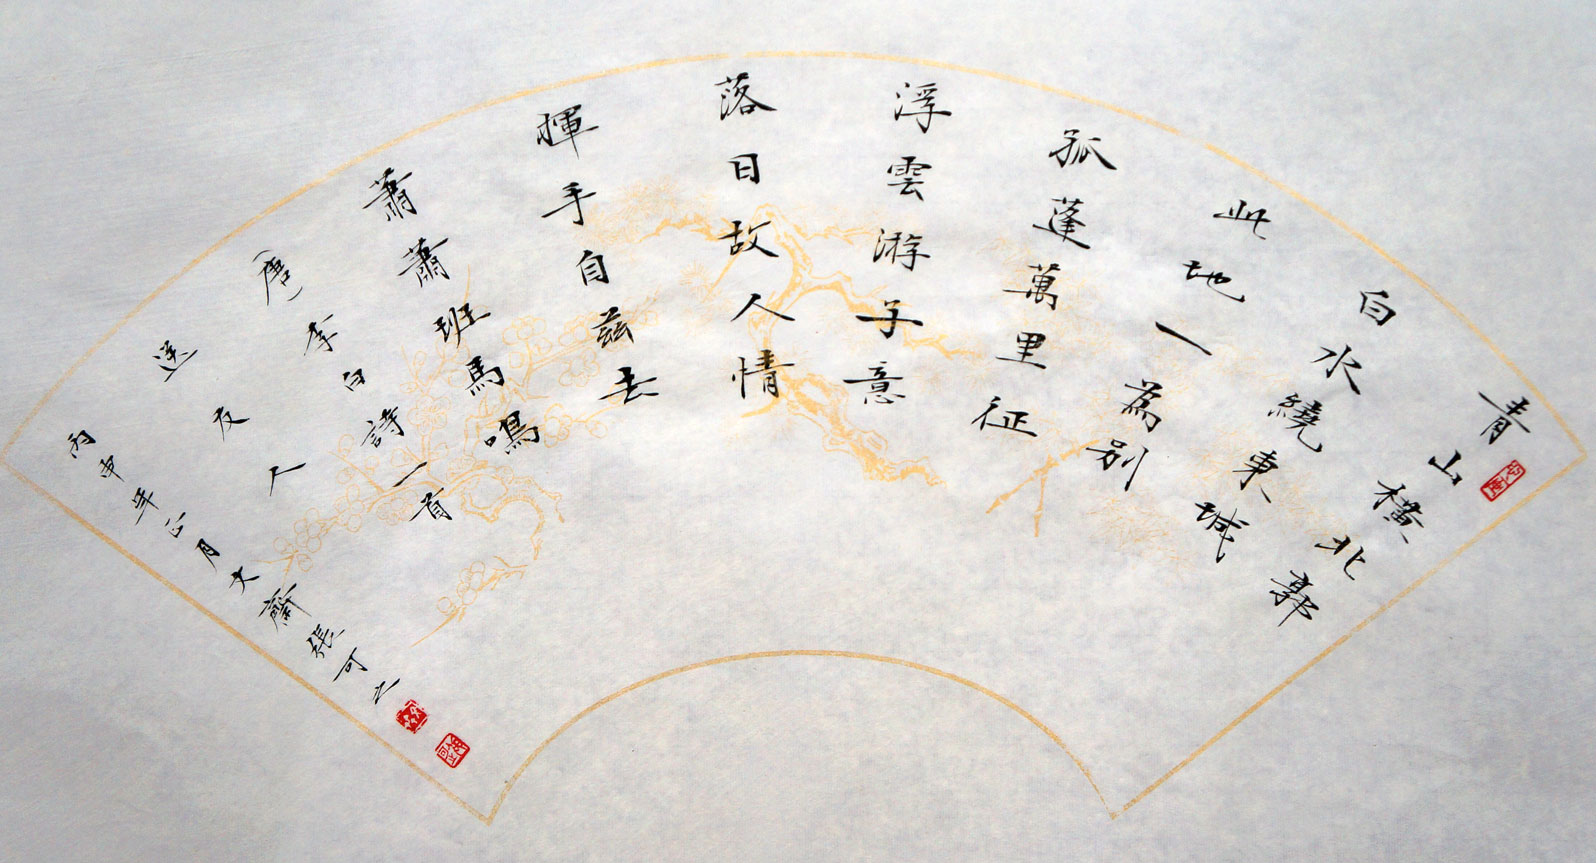 青山橫北郭
白水繞東城
此地一為別
孤蓬萬里征
浮雲游子意
落日故人情
揮手自茲去
蕭蕭班馬鳴
（唐）李白詩一首
送友人
丙申年正月文齋張可之